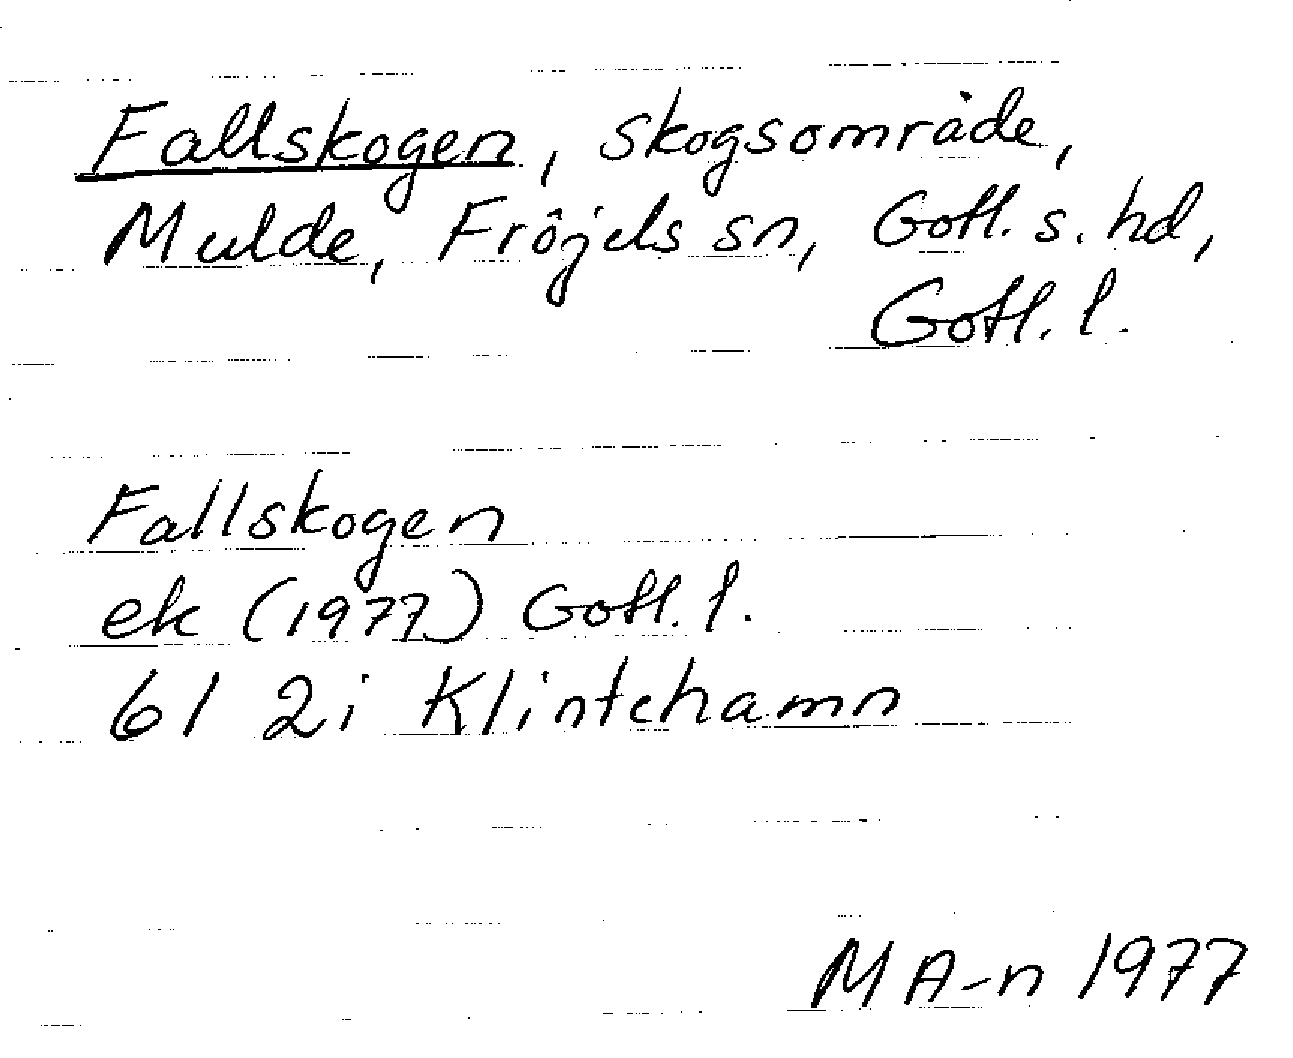 Fallskogen, skogsområde,
Mulde, Fröjels sn, Gotl. s. hd,
Gotl. l.
Fallskogen
ek (1977) Gotl. l.
6I 2i Klintehamn
M A-n 1977